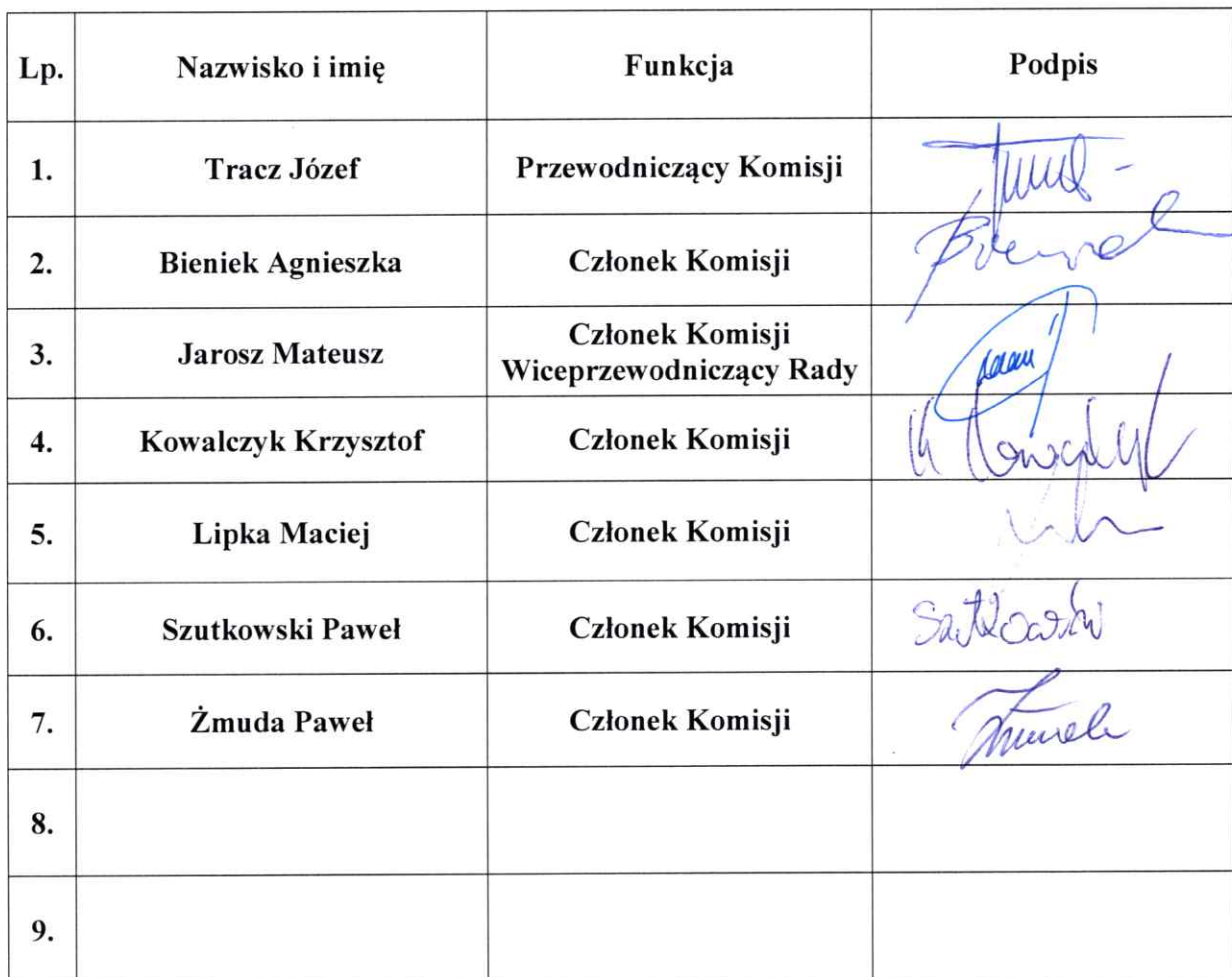 Lp. Nazwisko i imię Funkcja Podpis
1. Tracz Józef Przewodniczący Komisji
2. Bieniek Agnieszka Członek Komisji
3. Jarosz Mateusz Członek Komisji
Wiceprzewodniczący Rady
4. Kowalczyk Krzysztof Członek Komisji K Kowalczyk
5. Lipka Maciej Członek Komisji
6. Szutkowski Paweł Członek Komisji
7. Żmuda Paweł Członek Komisji Żmuda
8.
9.